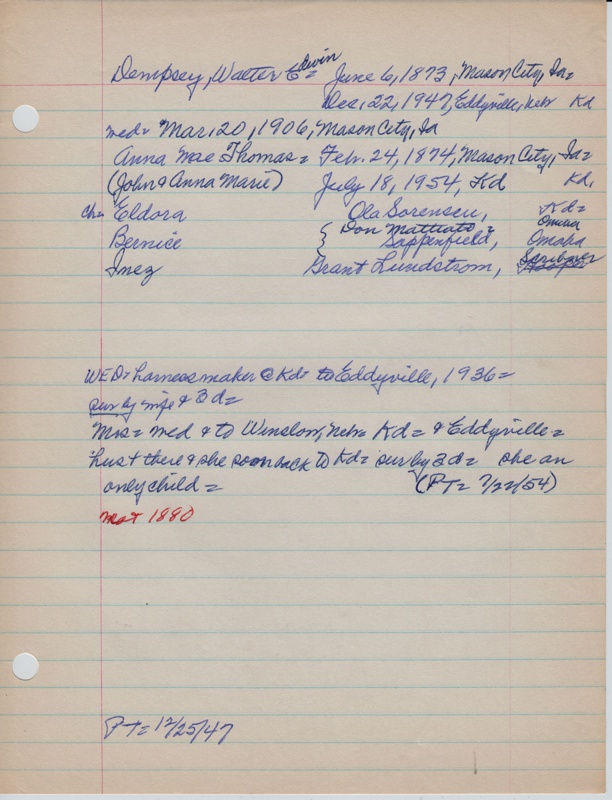 Dempsey, Walter Edwin = June 6, 1873, Mason City, Ia=
Dec. 22, 1947, Eddyville, Nebr Kd
wed= Mar. 20, 1906, Mason City, Ia
Anna Mae Thomas = Feb. 24, 1874, Mason City, Ia=
(John & Anna Marie) July 18, 1954, Kd Kd.
ch= Eldora Ola Sorensen, Kd=
Bernice { Don Mattiato = Omaha
Sappenfield, Omaha
Inez Grant Lundstrom, Scribner
WED= harness maker @ Kd= to Eddyville, 1936=
sur by wife & 3 d=
Mrs= wed & to Winslow, Nebr= Kd= & Eddyville=
hust there & she soon back to Kd= sur by 3 d= she an
only child = (PT= 7/22/54)
1880
PT= 12/25/47